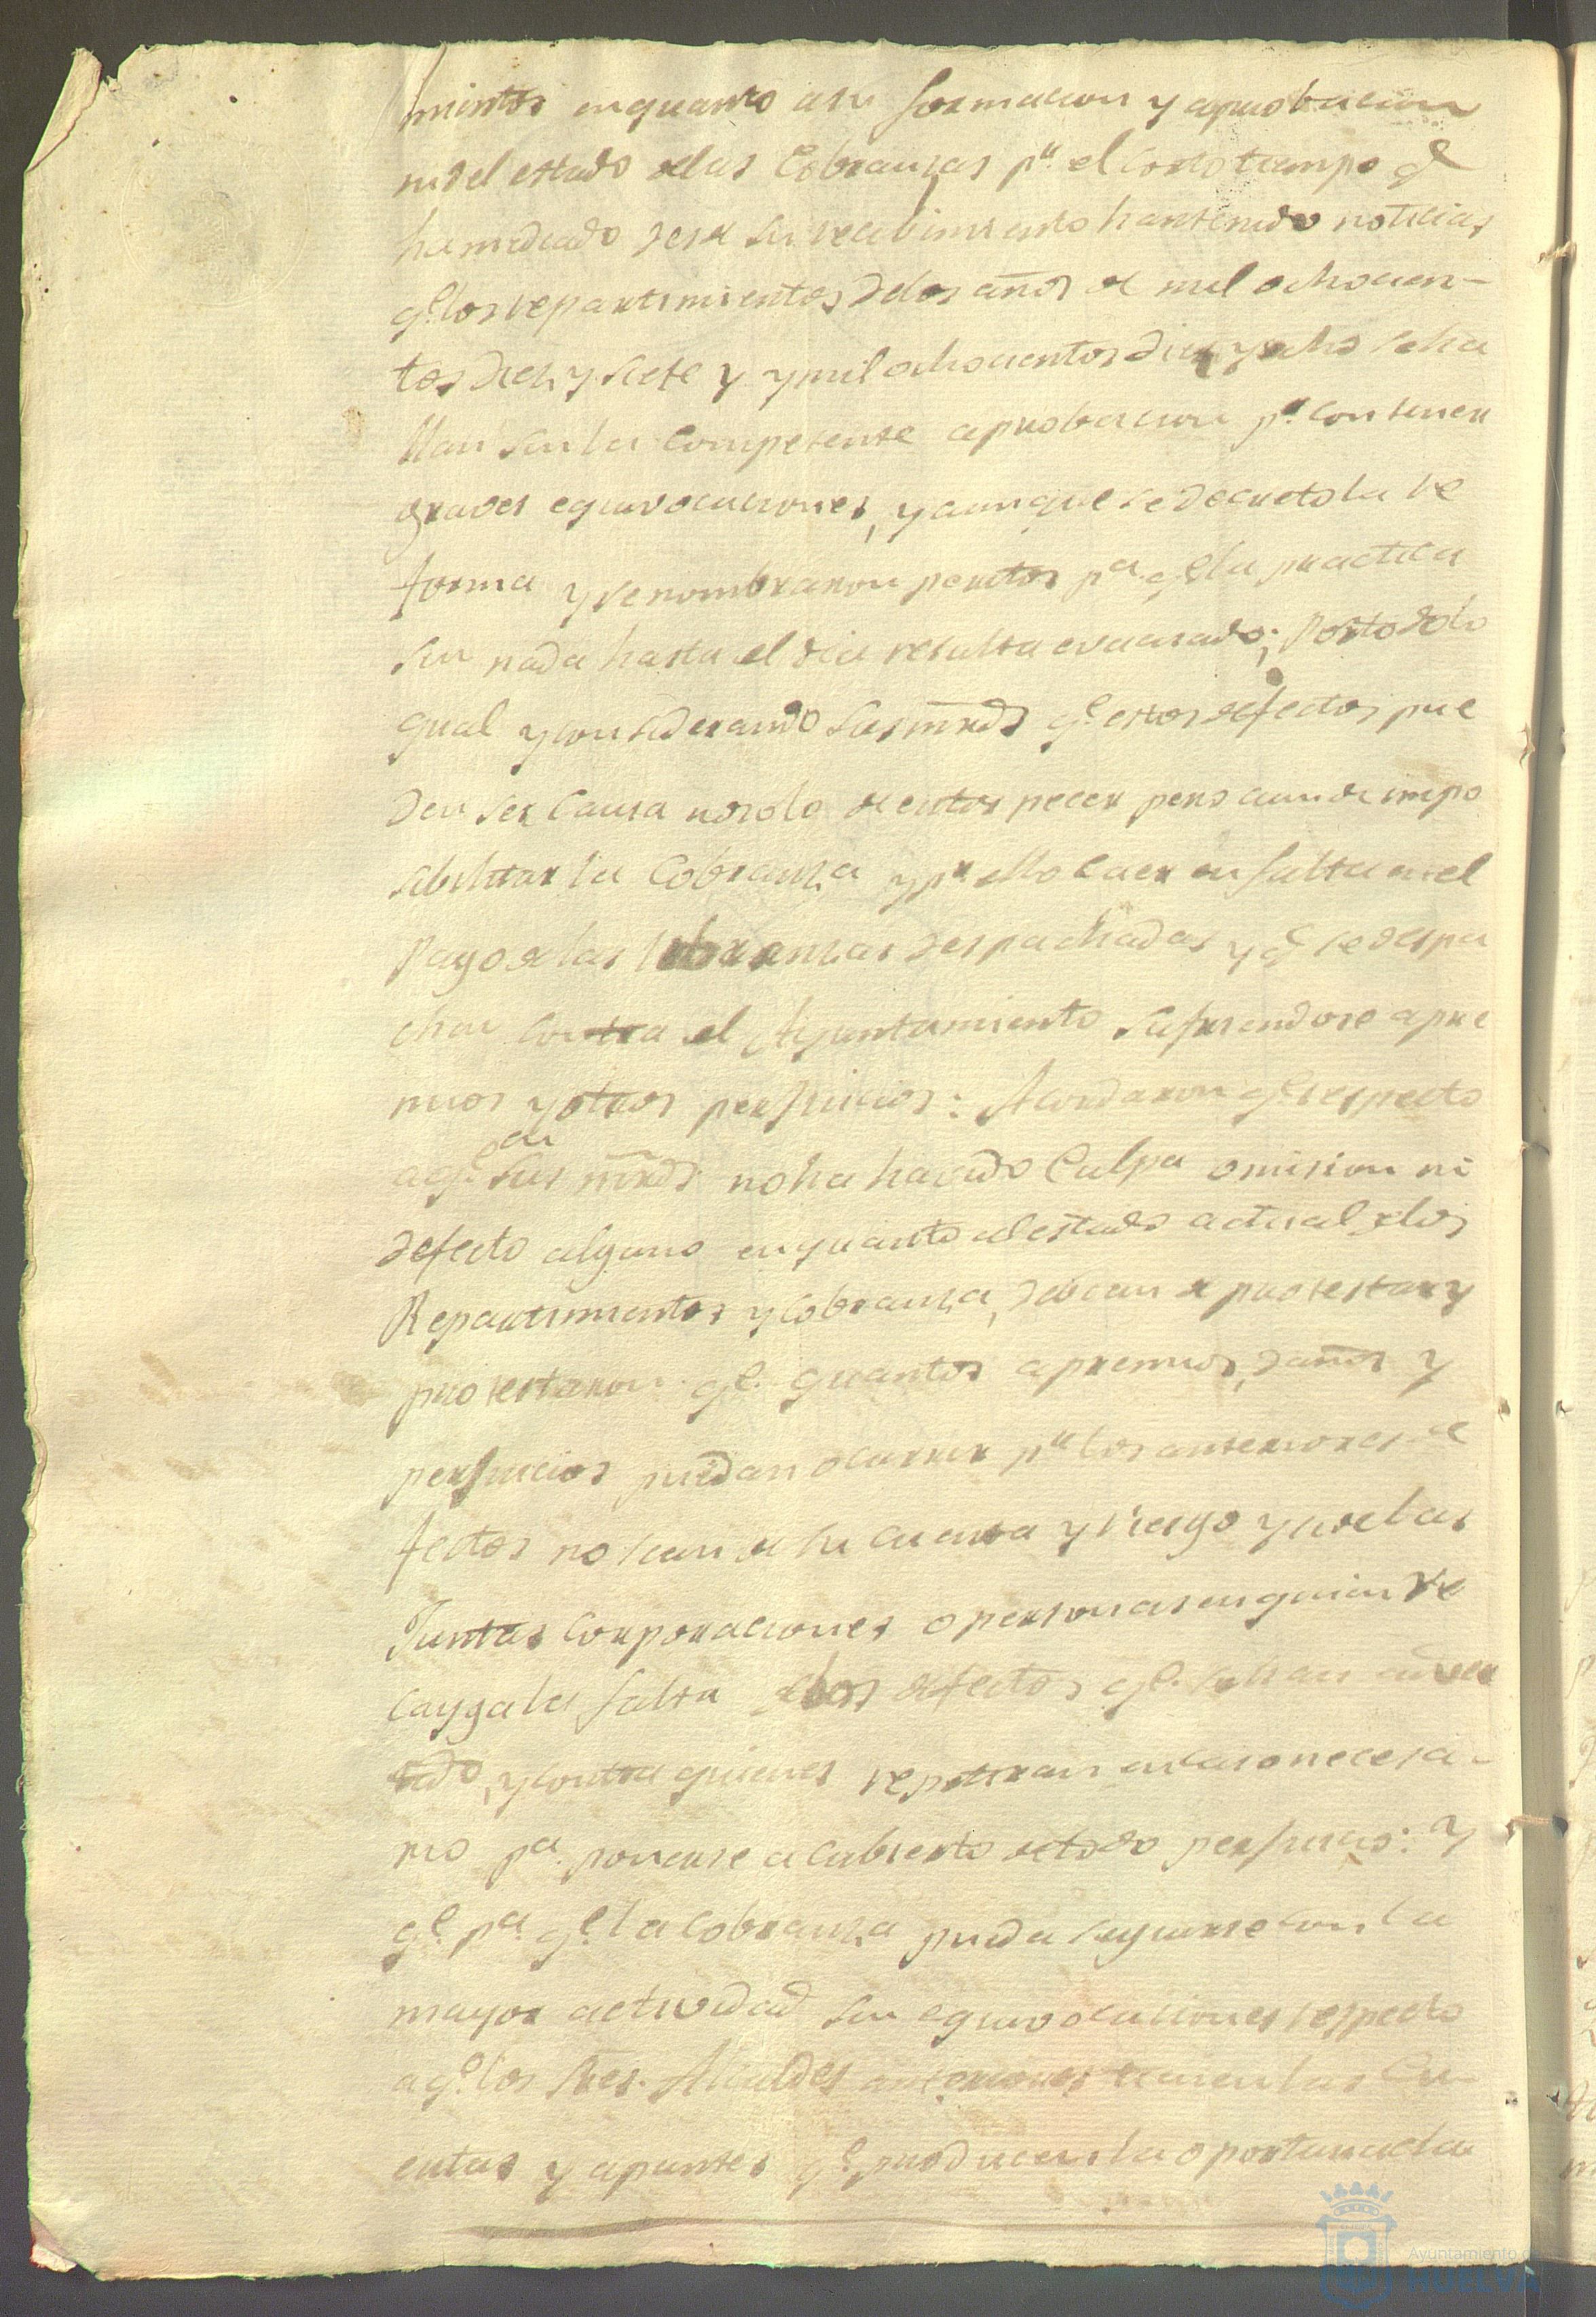 mientos en quanto a su formacion y aprobacion
ni del estado de las Cobranzas pr. el corto tiempo qe
ha mediado desde su recibimiento han tenido noticias
qe. los repartimientos de los años de mil ochocien-
tos diez y siete y y mil ochocientos diez y ocho se ha
llan sin la competente aprobacion pr. contener
graves equivocaciones, y aunque se decreto la re
forma y se nombraron peritos pa. qe. la practica
sen nada hasta el dia resulta evacuado; Por todo lo
qual y considerando sus mrds qe. estos defectos pue
den ser Causa no solo de entorpecer pero aun de impo
sibilitar la Cobranza y pr. ello caer en falta en el
Pago de las libranzas despachadas y qe se despa
chen contra el Ayuntamiento sufriendose apre
mios y otros perjuicios: Acordaron qe. respecto
a qe. en sus mrds. no ha havido Culpa omision ni
defecto alguno en quanto al estado actual de los
Repartimientos y Cobranza, debian de protestar y
protestaron qe. quantos apremios, daños y
perjuicios puedan ocurrir pr. los anteriores de
fectos no sean de su cuenta y riesgo y si de las
Juntas Corporaciones o personas en quien re
cayga la falta de los defectos qe. se han adver
tido, y contra quienes repetiran en caso necesa-
rio pa. ponerse a cubierto de todo perjuicio: Y
qe. pa. qe. la Cobranza pueda seguirse con la
mayor actividad sin equivocaciones respecto
a qe. los Sres. Alcaldes anteriores tienen las Cu-
entas y apuntes qe. producen la oportuna cla
Ayuntamiento de
HUELVA